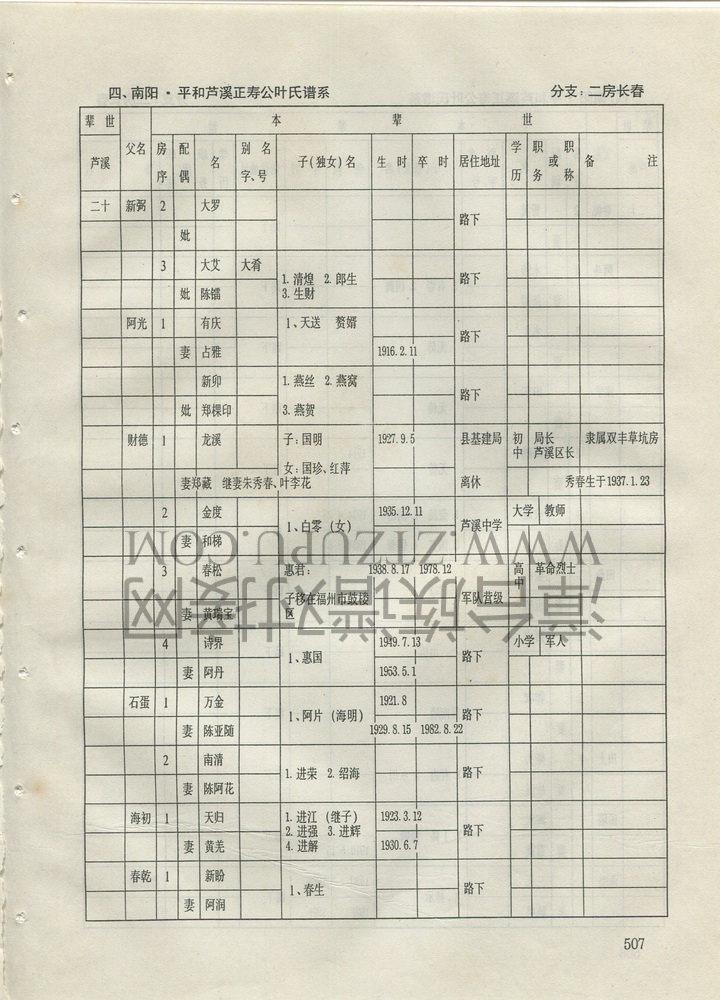 四、南阳·平和芦溪正寿公叶氏谱系 分支：二房长春
辈世 本 辈 世
芦溪 父名 房序 配偶 名 别名字、号 子(独女)名 生时 卒时 居住地址 学历 职务 或 职称 备注
二十 新弼 2 大罗 路下
妣
3 大艾 大肴 1.清煌 2.郎生 路下
妣 陈镭 3.生财
阿光 1 有庆 1、天送 赘婿 路下
妻 占雅 1916.2.11
新卯 1.燕丝 2.燕窝 路下
妣 郑棵印 3.燕贺
财德 1 龙溪 子：国明 1927.9.5 县基建局 初中 局长 芦溪区长 隶属双丰草坑房
女：国珍、红萍
妻郑藏 继妻朱秀春、叶李花 离休 秀春生于1937.1.23
2 金度 1、白零（女） 1935.12.11 芦溪中学 大学 教师
妻 和梯
3 春松 惠君： 1938.8.17 1978.12 高中 革命烈士
子移在福州市鼓楼区 军队营级
妻 黄瑞宝
4 诗界 1、惠国 1949.7.13 路下 小学 军人
妻 阿丹 1953.5.1
石蛋 1 万金 1、阿片（海明） 1921.8 路下
妻 陈亚随 1929.8.15 1982.8.22
2 南清 1.进荣 2.绍海 路下
妻 陈阿花
海初 1 天归 1.进江（继子） 1923.3.12 路下
2.进强 3.进辉
妻 黄羌 4.进解 1930.6.7
春乾 1 新盼 1、春生 路下
妻 阿润
507
WWW.ZTZUPU.COM
漳台族谱对接网